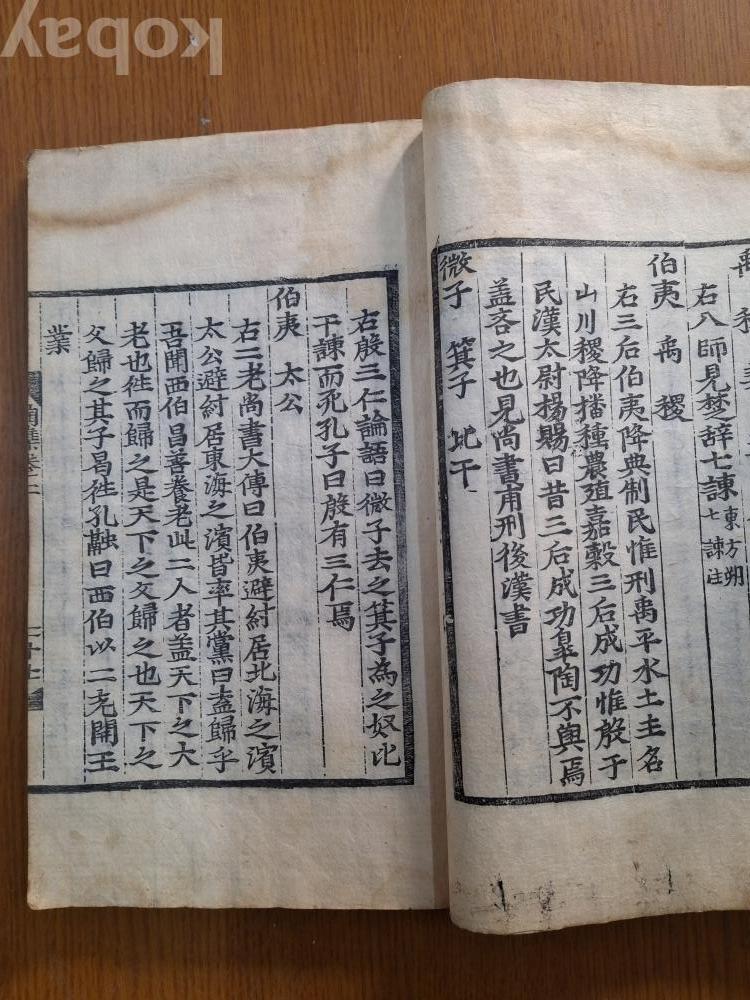 kobay
右八師見楚辭七諫東方朔七諫注
伯夷 禹 稷
右三后伯夷降典制民惟刑禹平水土主名
山川稷降播種農殖嘉穀三后成功惟殷于
民漢太尉楊賜曰昔三后成功臯陶不與焉
盖吝之也見尚書甫刑後漢書
微子 箕子 比干
右殷三仁論語曰微子去之箕子為之奴比
干諫而死孔子曰殷有三仁焉
伯夷 太公
右二老尚書大傳曰伯夷避紂居北海之濱
太公避紂居東海之濱皆率其黨曰盍歸乎
吾聞西伯昌善養老此二人者盖天下之大
老也徃而歸之是天下之父歸之也天下之
父歸之其子曷徃孔融曰西伯以二老開王
業